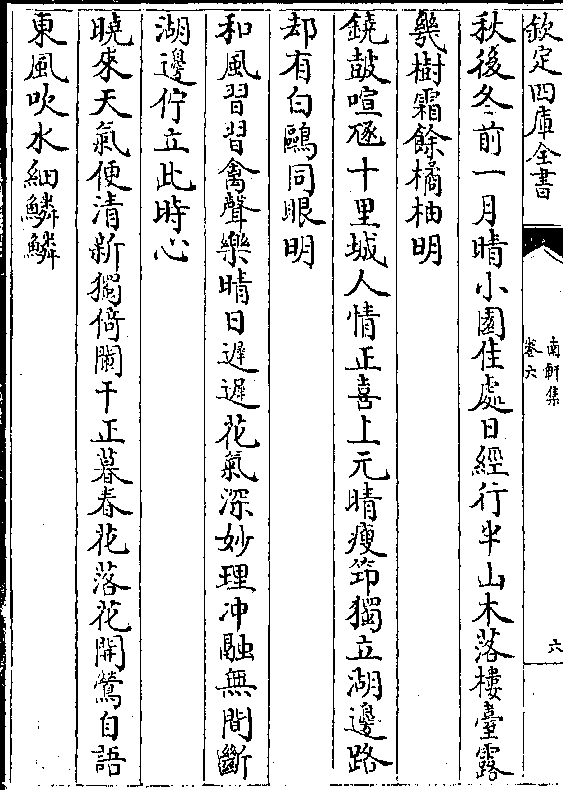 欽定四庫全書
南軒集
卷六
六
秋後冬前一月晴小園佳處日經行半山木落樓臺露
幾樹霜餘橘柚明
鐃鼓喧豗十里城人情正喜上元晴瘦笻獨立湖邊路
却有白鷗同眼明
和風習習禽聲樂晴日遲遲花氣深妙理冲融無間斷
湖邊佇立此時心
曉來天氣便清新獨倚闌干正暮春花落花開鶯自語
東風吹水細鱗鱗